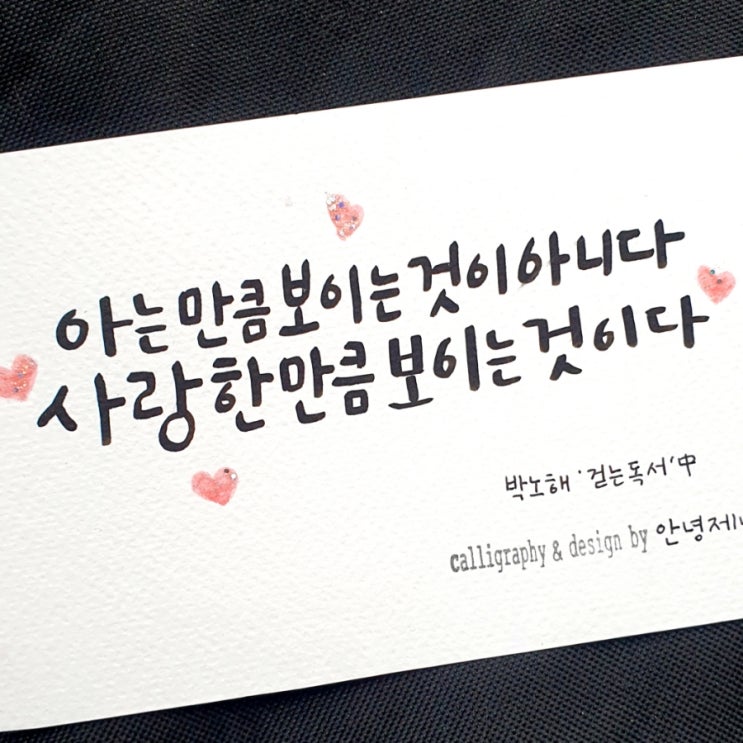 아는만큼보이는것이아니다
사랑한만큼보이는것이다
박노해 '걷는독서'中
calligraphy & design by